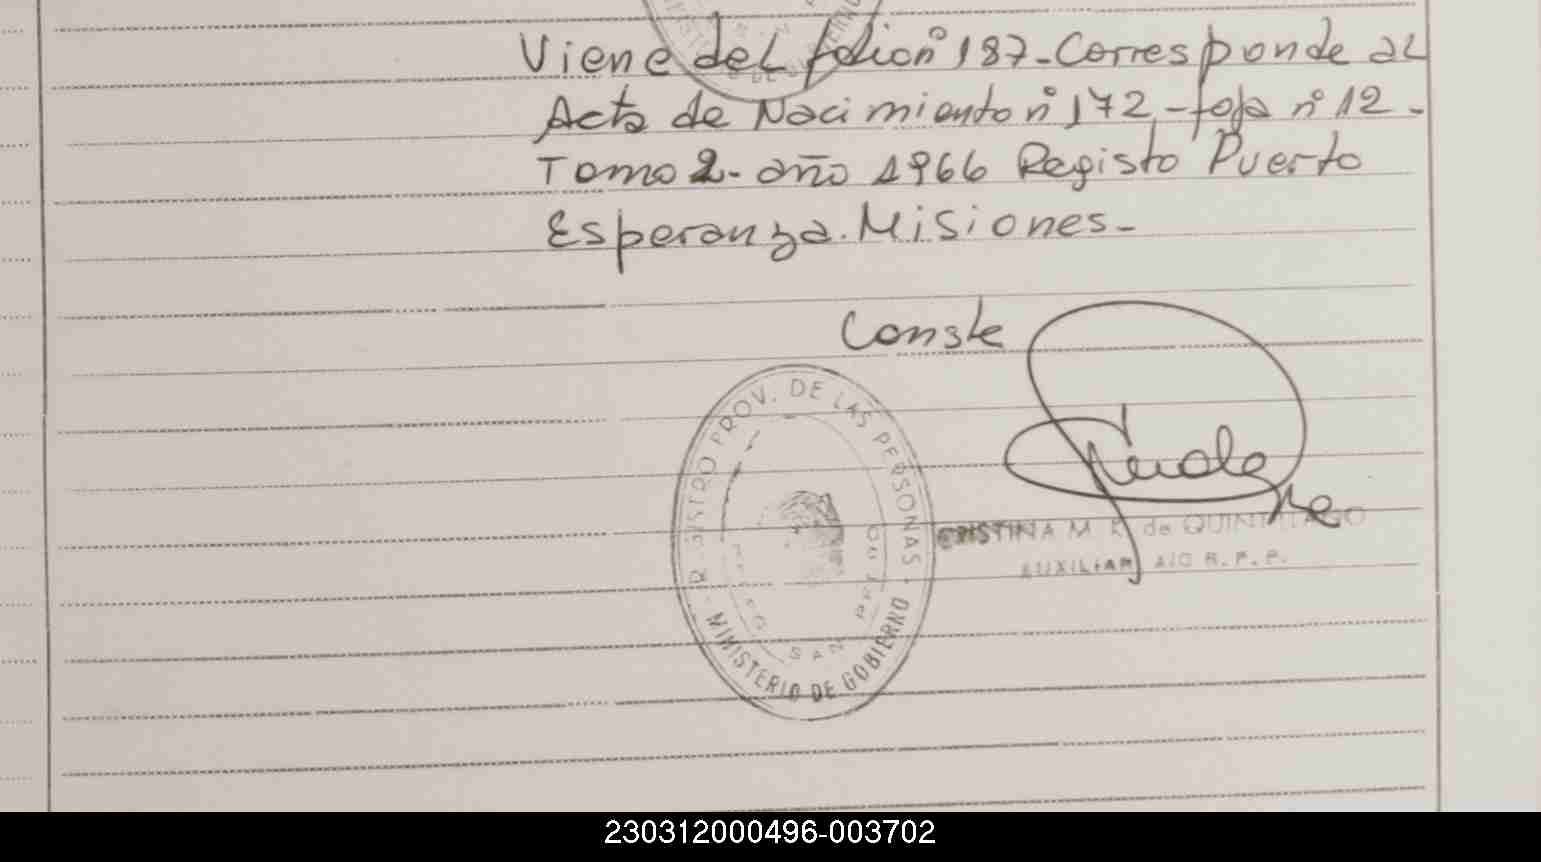 Viene del folio nº 187-Corresponde al
Acta de Nacimiento nº 172-foja nº 12-
Tomo 2- año 1966 Registo Puerto
Esperanza. Misiones-
Conste
PROV. DE LAS PERSONAS
MINISTERIO DE GOBIERNO
CRISTINA M. R. de
AUXILIAR
230312000496-003702